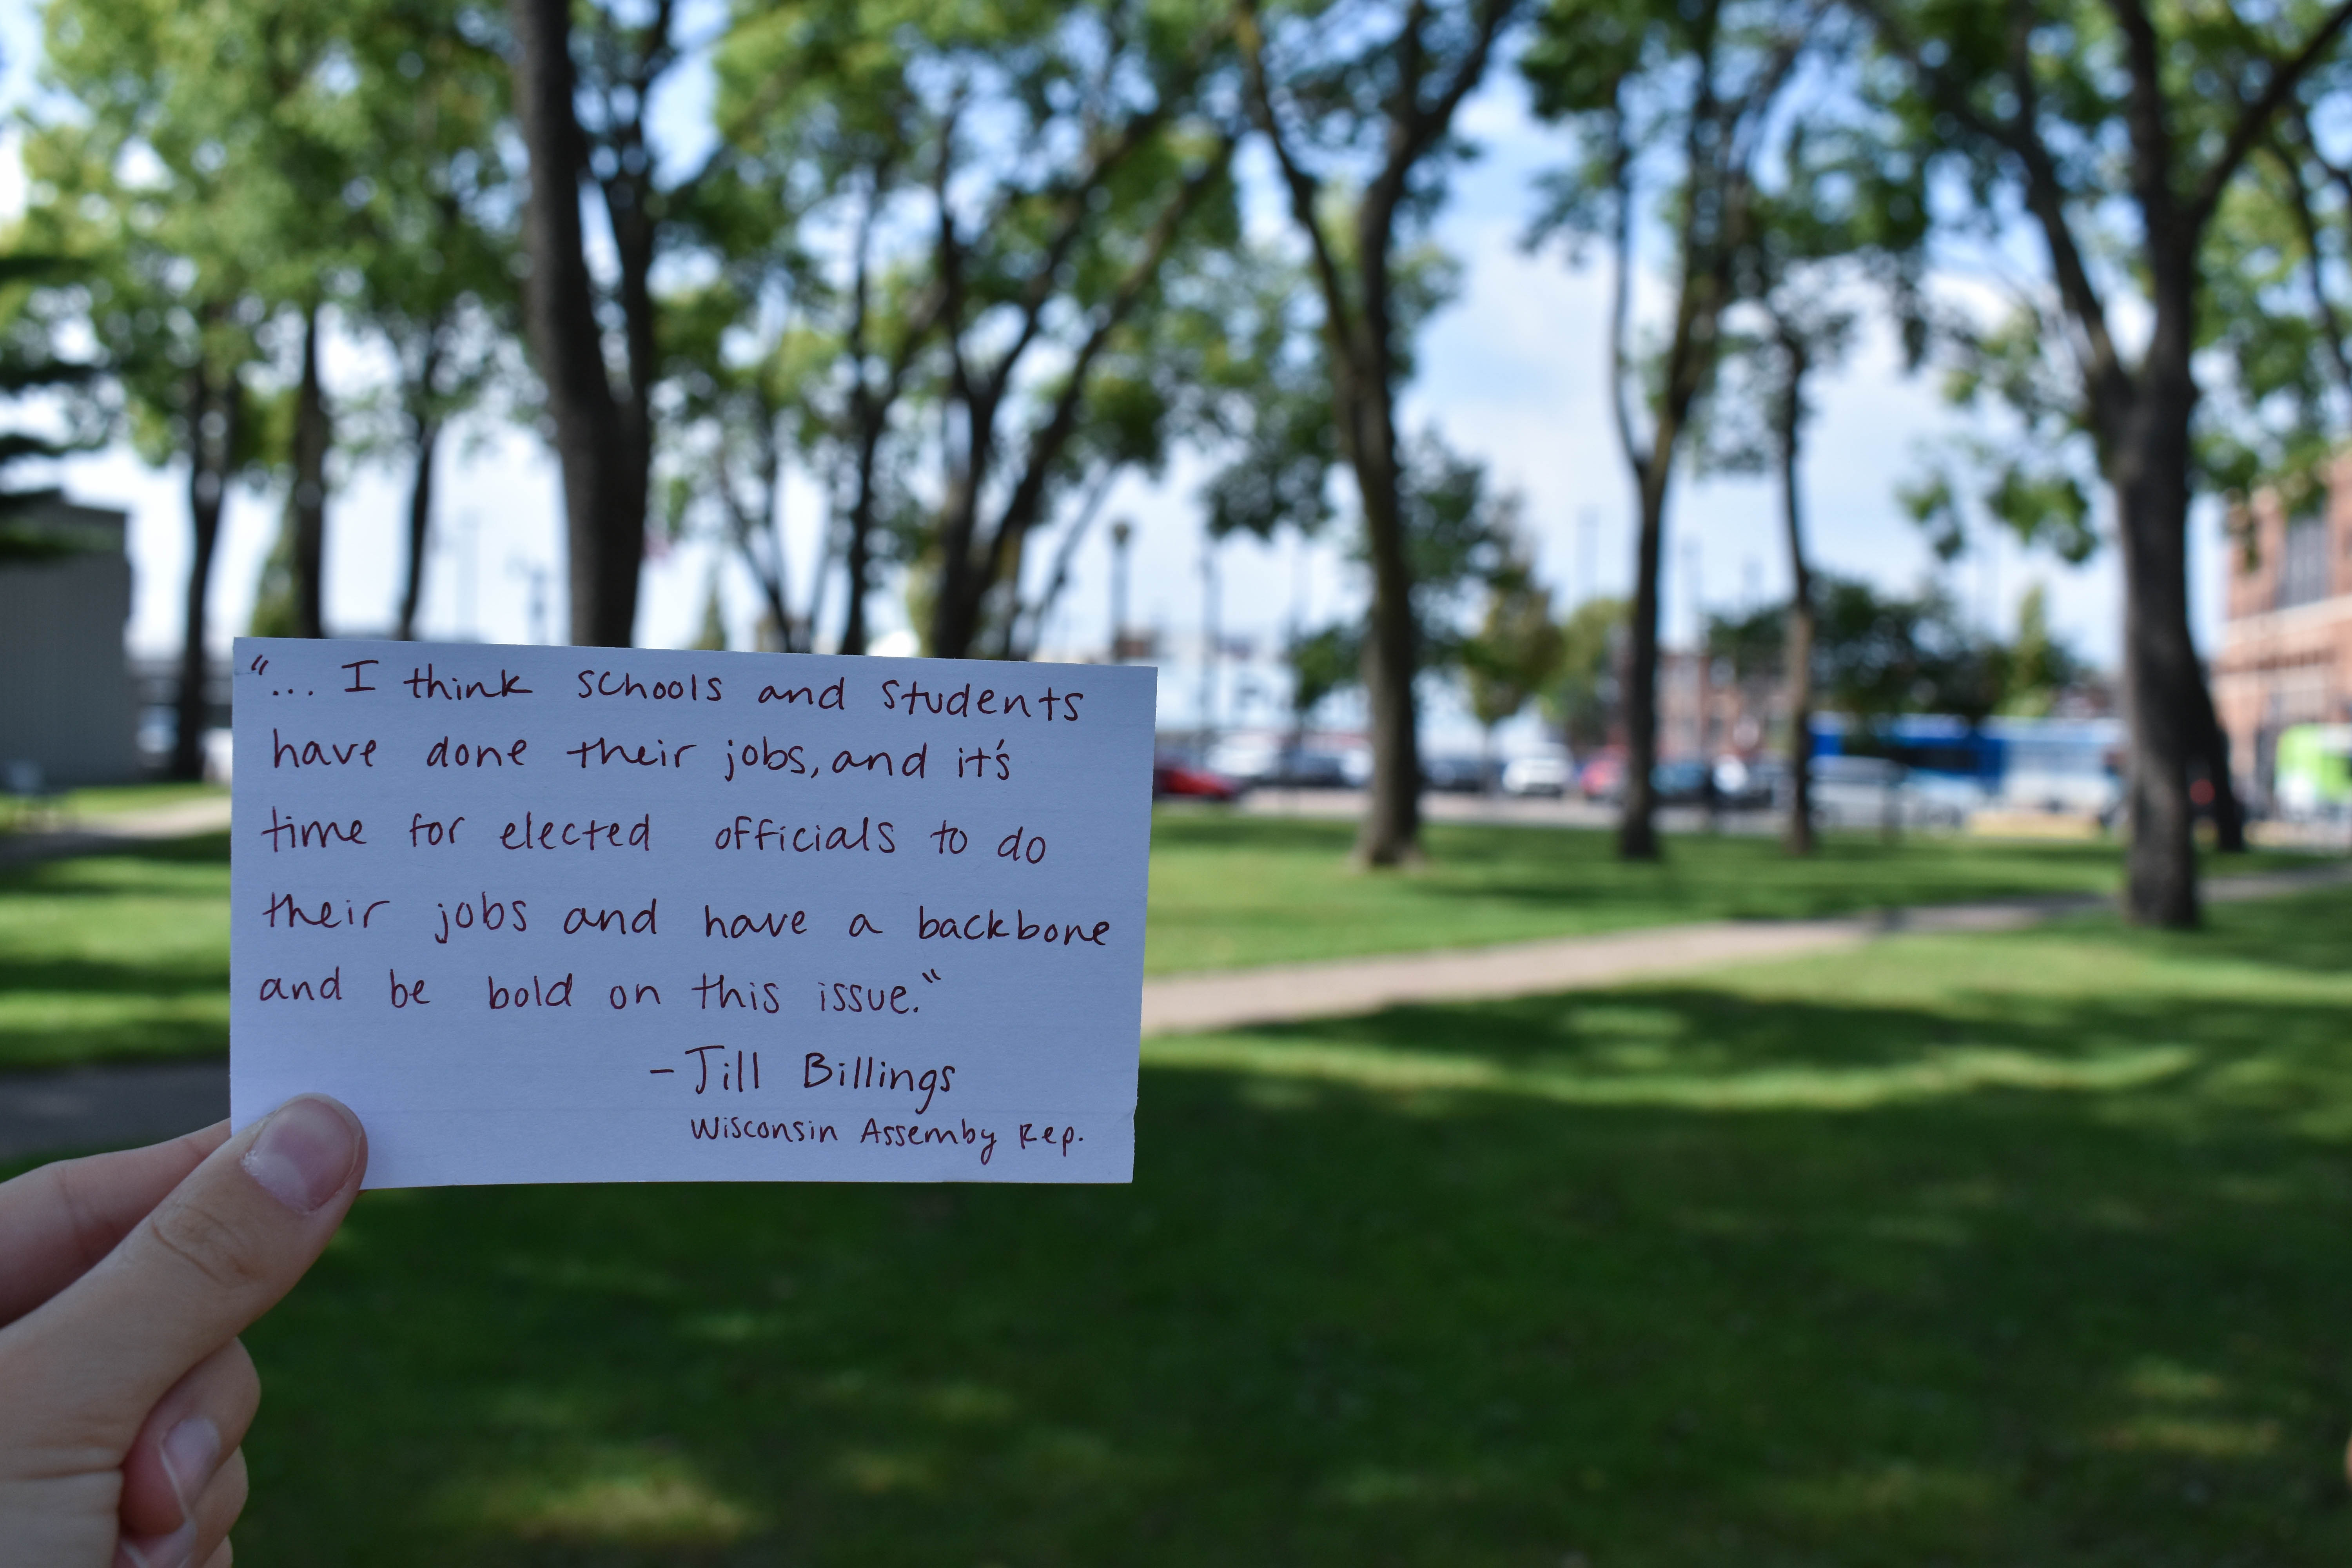 "... I think schools and students
have done their jobs, and it's
time for elected officials to do
their jobs and have a backbone
and be bold on this issue."
- Jill Billings
Wisconsin Assemby Rep.